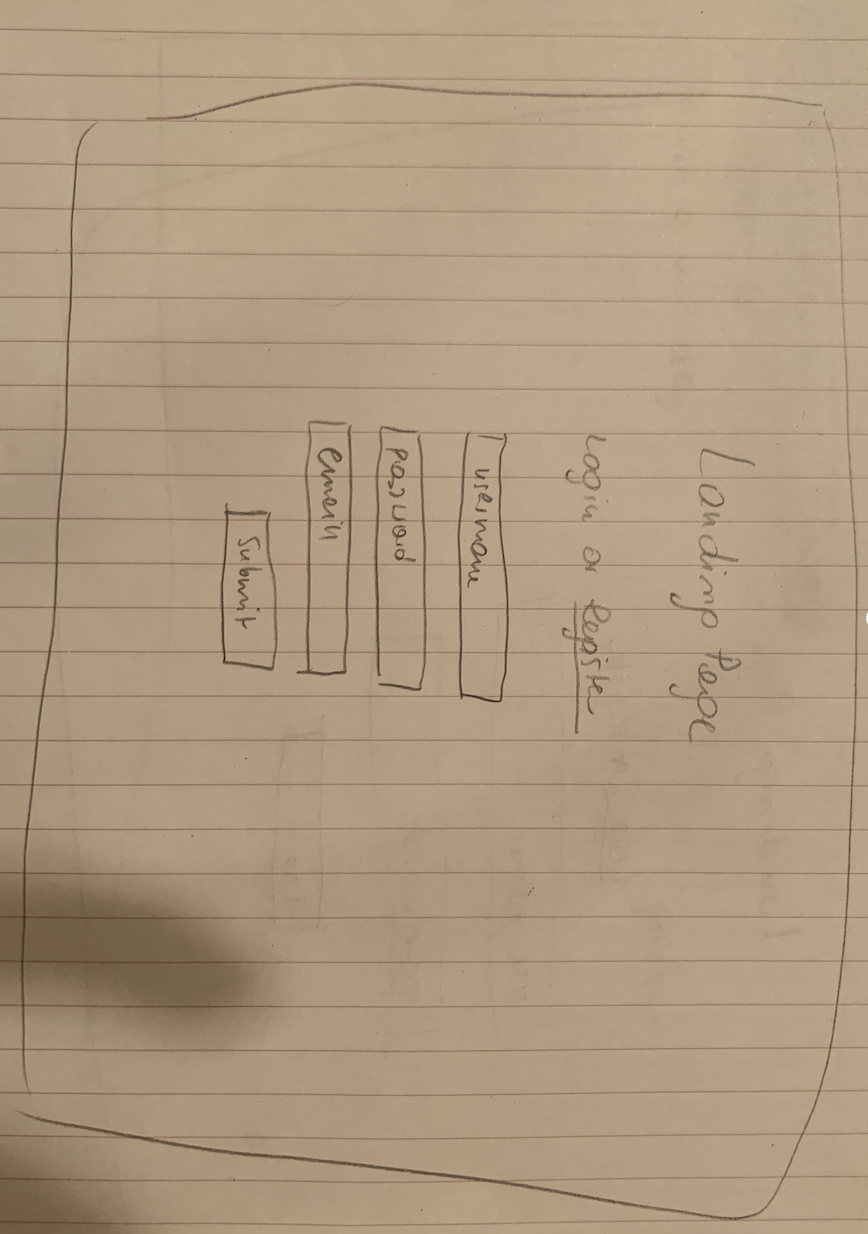 Landing Page
Login or Register
username
password
email
Submit